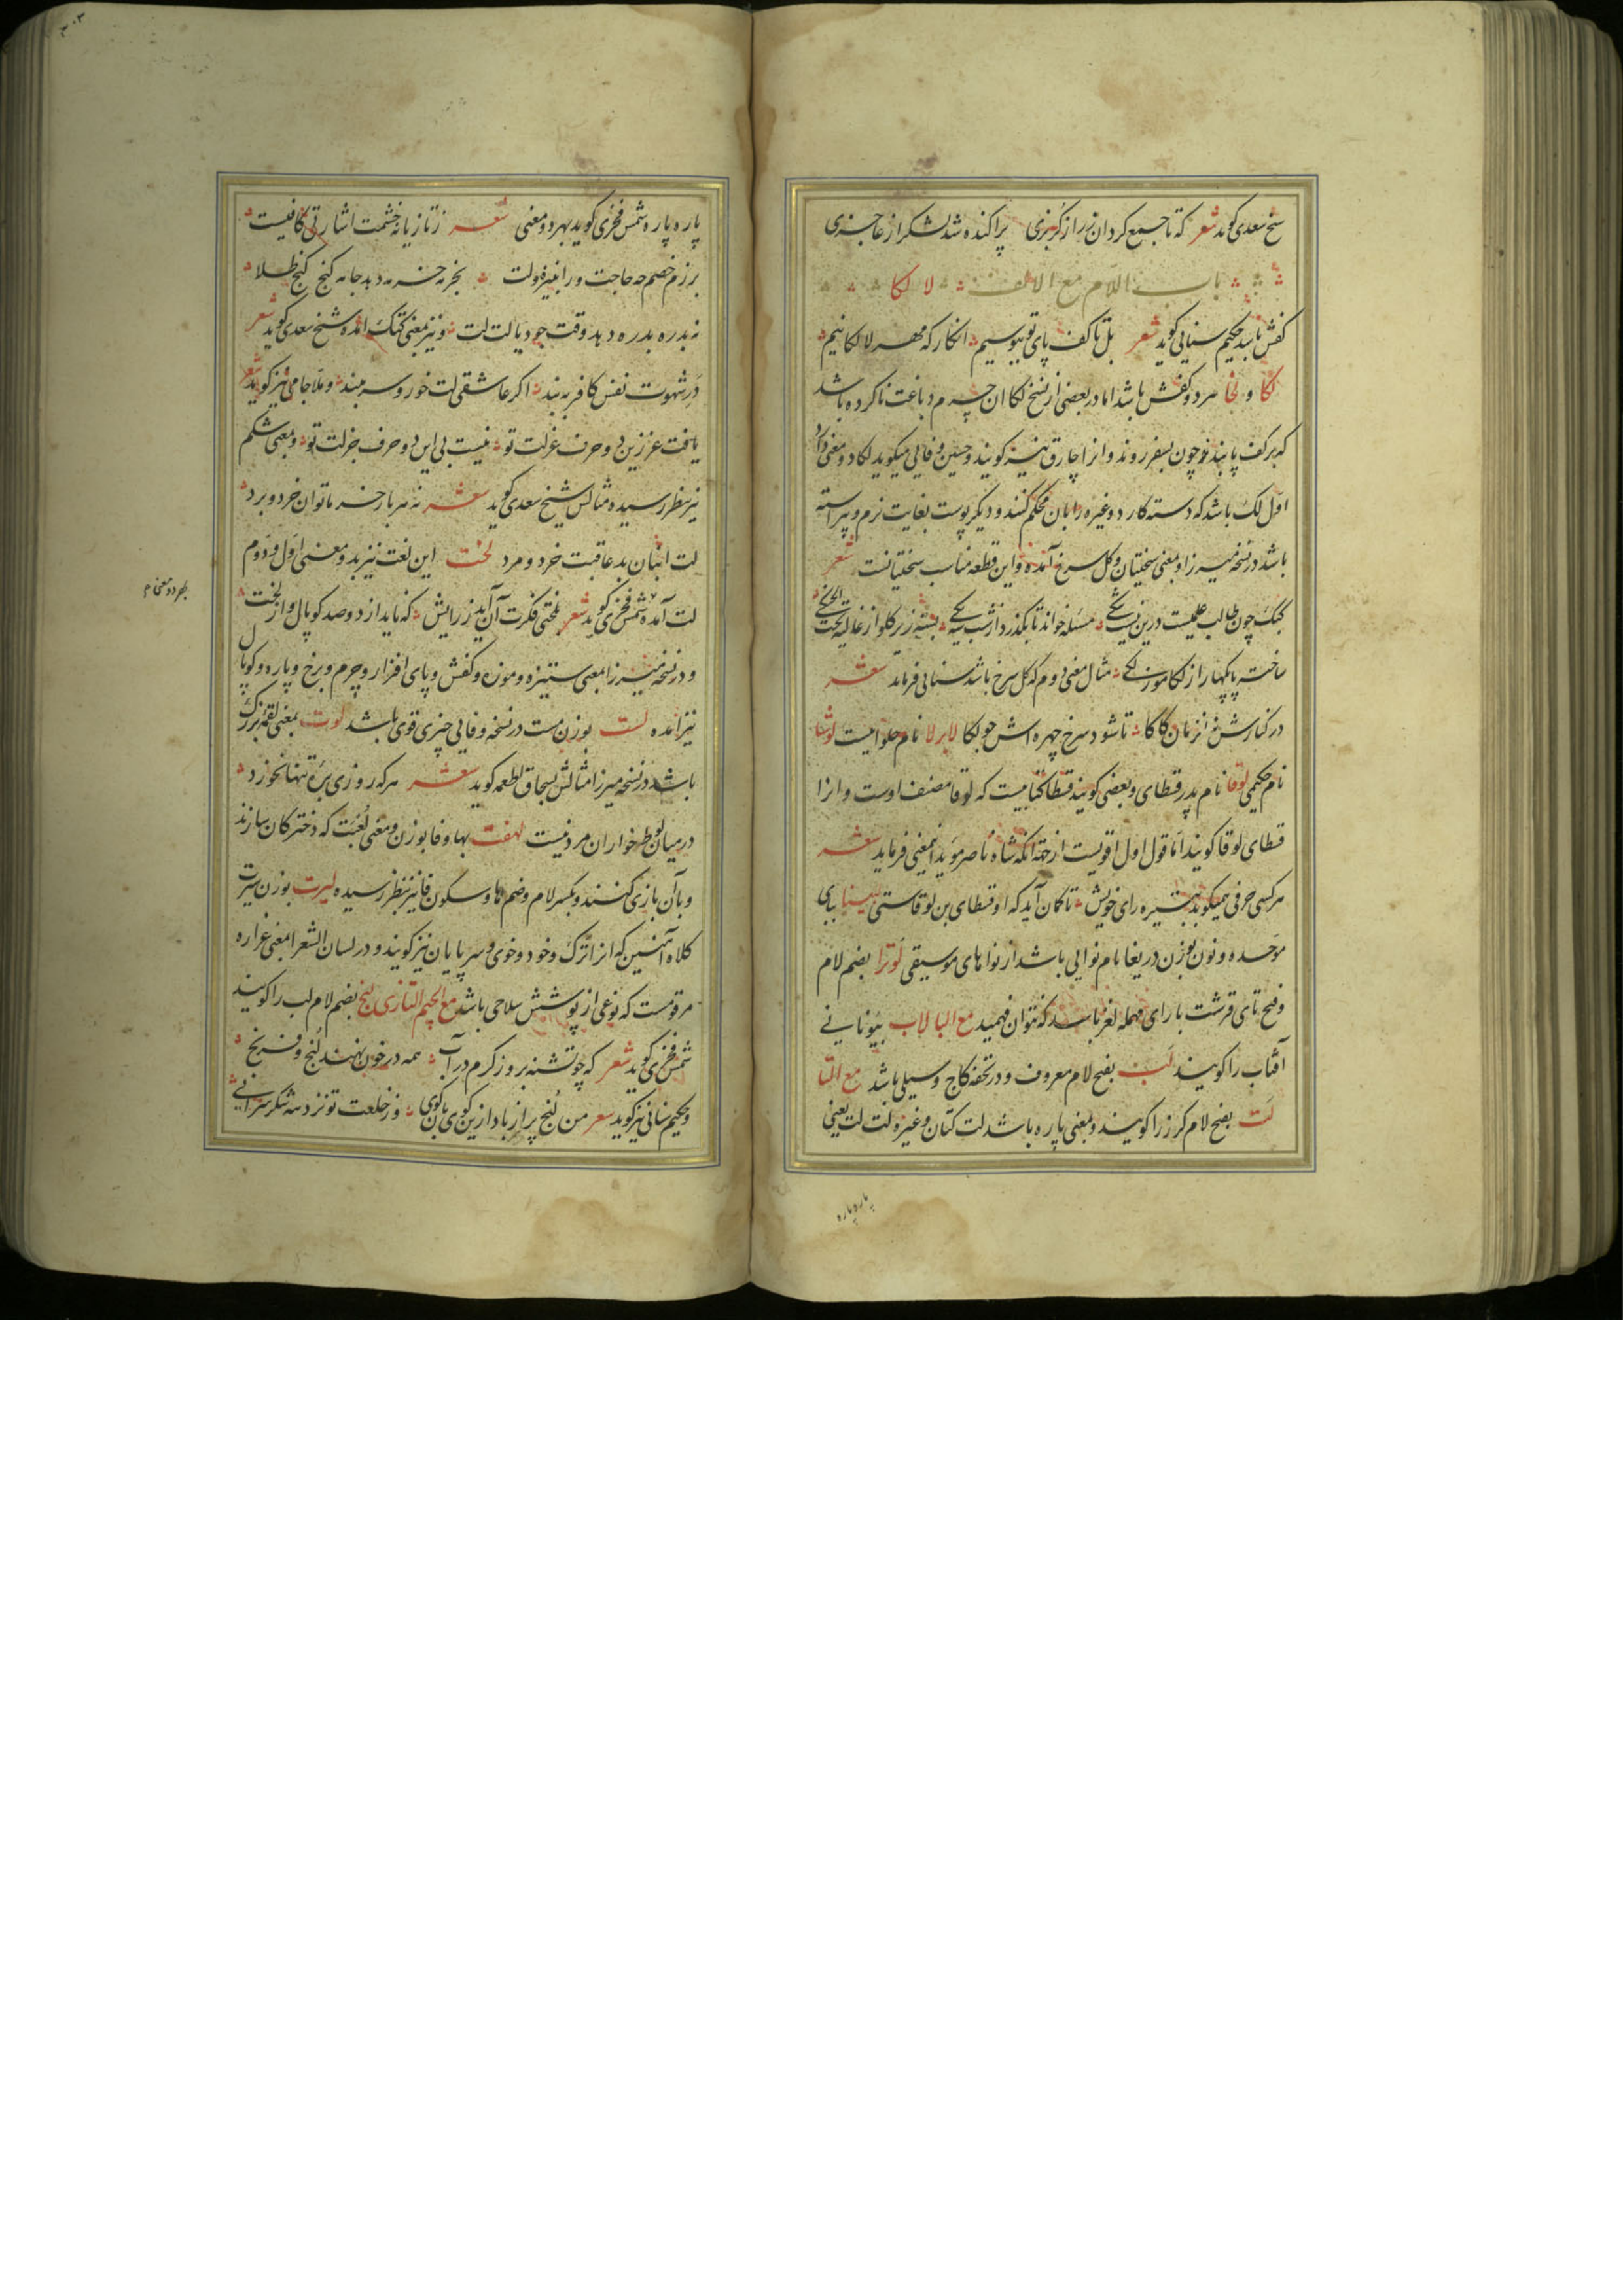 شیخ سعدی گوید شعر که تا جمع کرد آن زر از گربزی پراکنده شد لشکر از عاجزی
باب اللام مع الالف لا لکا
کفش باشد حکیم سنایی گوید شعر بل تا کف پای تو ببوسیم انکار که مهر لا لکاییم
لکا و لخا هر دو کفش باشد اما در بعضی از نسخ لکا ان چرم دباغت ناکرده باشد
که بر کف پا بندند چون بسفر روند و انرا چارق نیز گویند و حسین وفایی میگوید لکا دو معنی دارد
اول لک باشد که دسته کارد و غیره را بان محکم کنند و دیگر پوست بغایت نرم و پیراسته
باشد در نسخه میرزا و بمعنی سختیان و گل سرخ آمده و این قطعه مناسب سختیانست شعر
کبک چون طالب علمیست درین نیست شکی مسئله خواند تا بگذرد از شب سیکی بسته زیر گلو از غالیه تحت الحنکی
ساخته پایکها را ز لکا موزگکی مثال معنی دوم که گل سرخ باشد سنایی فرماید شعر
در کنارش نه ان زمان کاکا تا شود سرخ چهره اش چو لکا لابرلا نام حلواییست لوشا
نام حکیمی لوقا نام پدر قسطای و بعضی گویند قسطا کتابیست که لوقا مصنف اوست و انرا
قسطای لوقا گویند اما قول اول اقویست از جهة انکه شاه ناصر مؤید اینمعنی فرماید شعر
هر کسی حرفی همیگوید به تیره رای خویش تا گمان آید که او قسطای بن لوقاستی لبینا ببای
موحده و نون بوزن دریغا نام نوایی باشد از نواهای موسیقی لوترا بضم لام
و فتح تای قرشت با رای مهمله لغز باشد که نتوان فهمید مع البا لاب بیونانی
آفتاب را گویند لب بفتح لام معروف و در تحفه کاج و سیلی باشد مع التا
لت بفتح لام گرز را گویند و بمعنی پاره باشد لت کتان و غیره لت لت یعنی
پاره پاره
پاره پاره شمس فخری گوید بهر دو معنی شعر ز تازیانه خشمت اشارتی کافیست
برزم خصم چه حاجت ورا نیزه و لت بخر نه خره دهد جامه گنج گنج طلا
نه بدره بدره دهد وقت جود یا لت لت و نیز بمعنی کتک امده شیخ سعدی گوید شعر
در شهوت نفس کافر ببند اگر عاشقی لت خور و سر مبند و ملا جامی نیز گوید شعر
یافت عز زین دو حرف عزلت تو نیست بی این دو حرف جز لت تو و بمعنی شکم
نیز بنظر رسیده مثالش شیخ سعدی گوید شعر نه هر بار خرما توان خورد و برد
لت انبان بد عاقبت خورد و مرد لخت این لغت نیز بدو معنی اول و دوم
لت آمده شمس فخری گوید شعر بلختی فکرت آن آید ز رایش که ناید از دو صد کوپال و از لخت
و در نسخه میرزا بمعنی ستیزه و موزه و کفش و پای افزار و چرم و برخ و پاره و کوپال
نیز امده لست بوزن مست در نسخه وفایی چیزی قوی باشد لوت بمعنی لقمه بزرگ
باشد در نسخه میرزا مثالش بسحاق اطعمه گوید شعر هر که روزی بره تنها نخورد
در میان لوط خواران مرد نیست لهفت بها و فا بوزن و معنی لعبت که دخترکان سازند
و بآن بازی کنند و بکسر لام و ضم ها و سکون فا نیز بنظر رسیده لیرت بوزن سیرت
کلاه آهنین که انرا ترک و خود و خوی و سرپایان نیز گویند و در لسان الشعرا بمعنی غراره
مرقومست که نوعی از پوشش سلاحی باشد مع الجیم التازی لنج بضم لام لب را گویند
شمس فخری گوید شعر که چو تشنه بروز گرم در آب همه در خون نهند لنج و فرنج
و حکیم سنائی نیز گوید شعر من لنج پر از باد ازین کوی بآن کوی